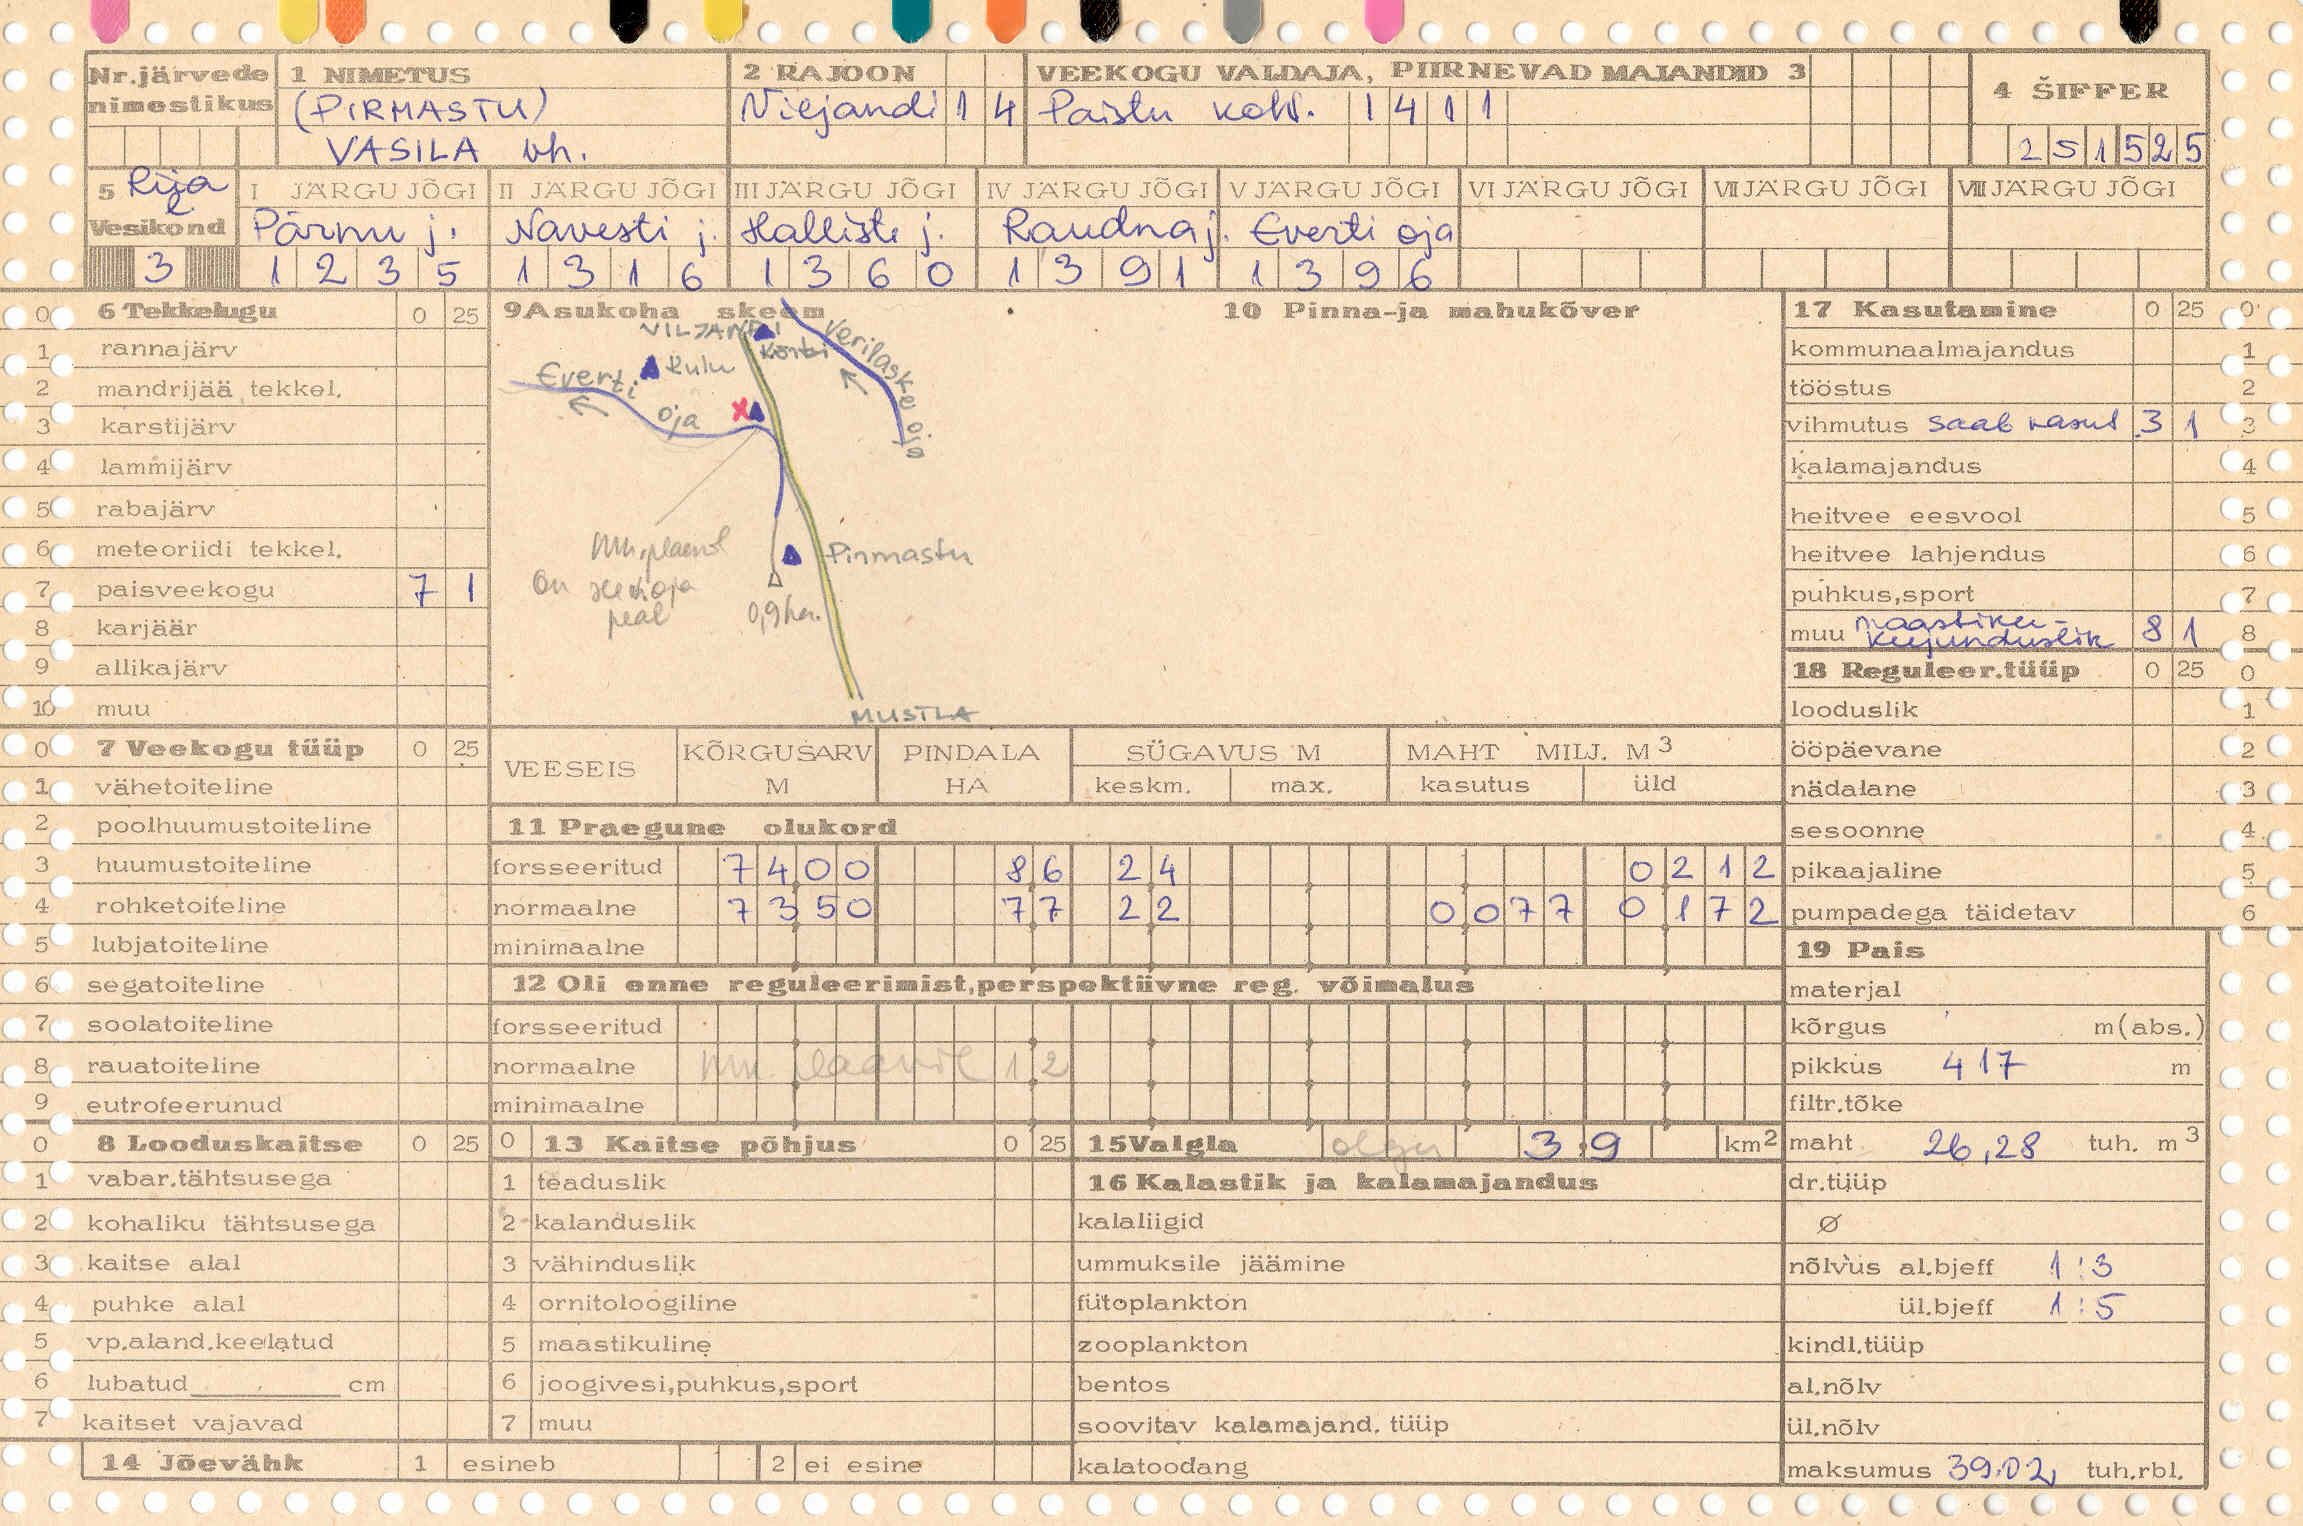 Nr.järvede nimestikus
1 NIMETUS
(PIRMASTU)
VASILA vh.
2 RAJOON
Viljandi 1 4
VEEKOGU VALDAJA, PIIRNEVAD MAJANDID 3
Paistu kolh. 1 4 1 1
4 ŠIFFER
2 5 1 5 2 5
5 Riia l.
Vesikond
3
I JÄRGU JÕGI
Pärnu j.
1 2 3 5
II JÄRGU JÕGI
Navesti j.
1 3 1 6
III JÄRGU JÕGI
Halliste j.
1 3 6 0
IV JÄRGU JÕGI
Raudna j.
1 3 9 1
V JÄRGU JÕGI
Everti oja
1 3 9 6
VI JÄRGU JÕGI
VII JÄRGU JÕGI
VIII JÄRGU JÕGI
0 6 Tekkelugu 0 25
1 rannajärv
2 mandrijää tekkel.
3 karstijärv
4 lammijärv
5 rabajärv
6 meteoriidi tekkel.
7 paisveekogu 7 1
8 karjäär
9 allikajärv
10 muu
0 7 Veekogu tüüp 0 25
1 vähetoiteline
2 poolhuumustoiteline
3 huumustoiteline
4 rohketoiteline
5 lubjatoiteline
6 segatoiteline
7 soolatoiteline
8 rauatoiteline
9 eutrofeerunud
0 8 Looduskaitse 0 25
1 vabar.tähtsusega
2 kohaliku tähtsusega
3 kaitse alal
4 puhke alal
5 vp.aland.keelatud
6 lubatud cm
7 kaitset vajavad
14 Jõevähk 1 esineb 2 ei esine
9 Asukoha skeem
VILJANDI
Kõrtsi
Kulu
Verilaske oja
Everti oja
X
Pirmastu
mh. plaanil
on see koja
peal
0,9 ha.
MUSTLA
10 Pinna-ja mahukõver
VEESEIS
KÕRGUSARV M
PINDALA HA
SÜGAVUS M
keskm. max.
MAHT MILJ. M3
kasutus üld
11 Praegune olukord
forsseeritud 7 4 0 0 8 6 2 4 0 2 1 2
normaalne 7 3 5 0 7 7 2 2 0 0 7 7 0 1 7 2
minimaalne
12 Oli enne reguleerimist,perspektiivne reg. võimalus
forsseeritud
normaalne mh. plaanil 1 2
minimaalne
0 13 Kaitse põhjus 0 25
1 teaduslik
2 kalanduslik
3 vähinduslik
4 ornitoloogiline
5 maastikuline
6 joogivesi,puhkus,sport
7 muu
15 Valgla olgu 3 9 km2
16 Kalastik ja kalamajandus
kalaliigid
ummuksile jäämine
fütoplankton
zooplankton
bentos
soovitav kalamajand. tüüp
kalatoodang
17 Kasutamine 0 25 0
kommunaalmajandus 1
tööstus 2
vihmutus saab kasut 3 1 3
kalamajandus 4
heitvee eesvool 5
heitvee lahjendus 6
puhkus,sport 7
muu maastiku-
kujunduslik 8 1 8
18 Reguleer.tüüp 0 25 0
looduslik 1
ööpäevane 2
nädalane 3
sesoonne 4
pikaajaline 5
pumpadega täidetav 6
19 Pais
materjal
kõrgus m(abs.)
pikkus 417 m
filtr.tõke
maht 26,28 tuh. m3
dr.tüüp
Ø
nõlvus al.bjeff 1:3
ül.bjeff 1:5
kindl.tüüp
al.nõlv
ül.nõlv
maksumus 39.02, tuh.rbl.